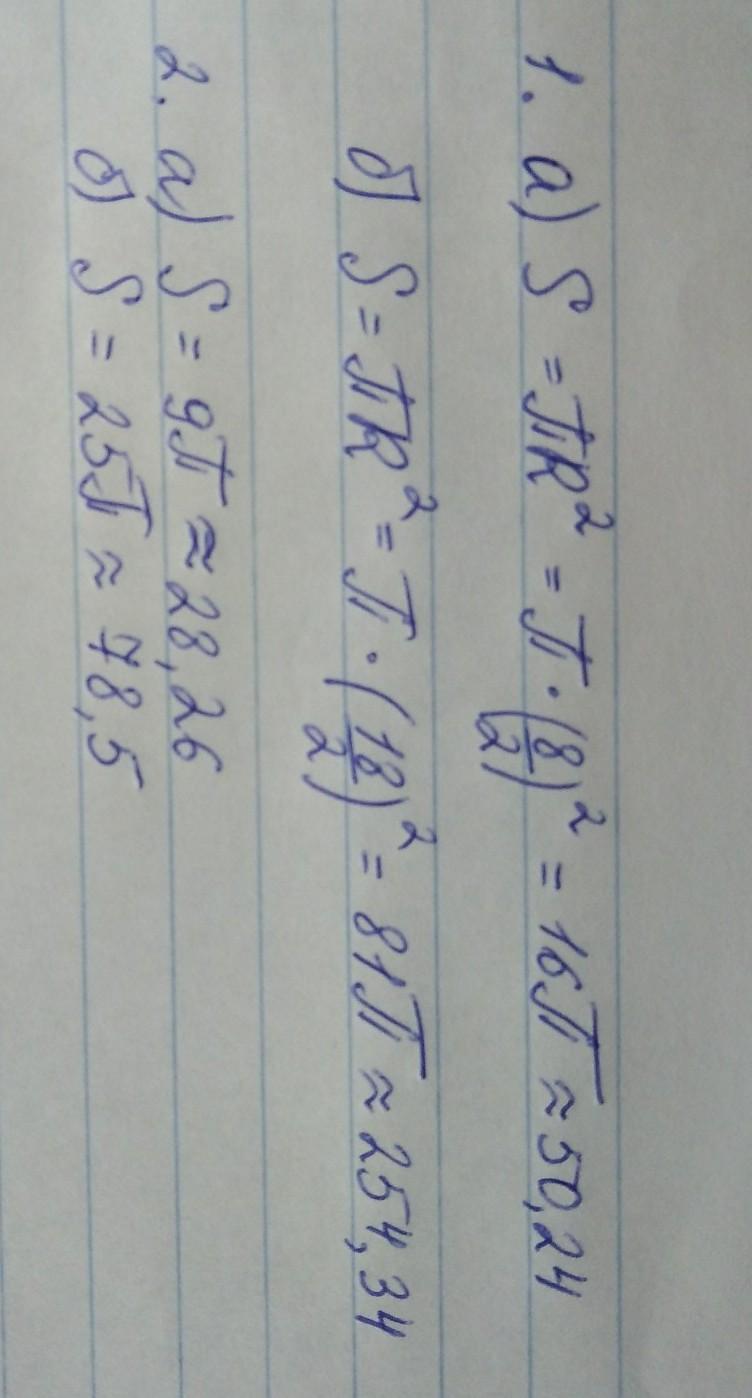 1. а) S = πR² = π · (8/2)² = 16π ≈ 50,24
б) S = πR² = π · (18/2)² = 81π ≈ 254,34
2. а) S = 9π ≈ 28,26
б) S = 25π ≈ 78,5